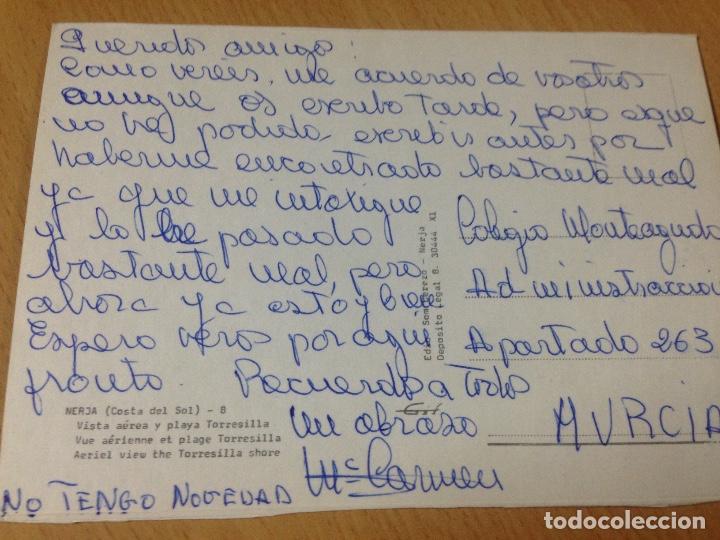 Queridos amigo:
Como vereis, me acuerdo de vosotros
aunque os escribo tarde, pero esque
no he podido escribis antes por
haberme encontrado bastante mal
ya que me intoxique
y lo he pasado
bastante mal, pero
ahora ya estoy bien
Espero veros por aqui
pronto. Recuerdos a Todos
Un abrazo
Mc Carmen
NO TENGO NOVEDAD
Colegio Monteagudo
Administracción
Apartado 263
MURCIA
NERJA (Costa del Sol) - 8
Vista aérea y playa Torresilla
Vue aérienne et plage Torresilla
Aeriel view the Torresilla shore
- Nerja
Deposito Legal B. 30444 XI
todocoleccion